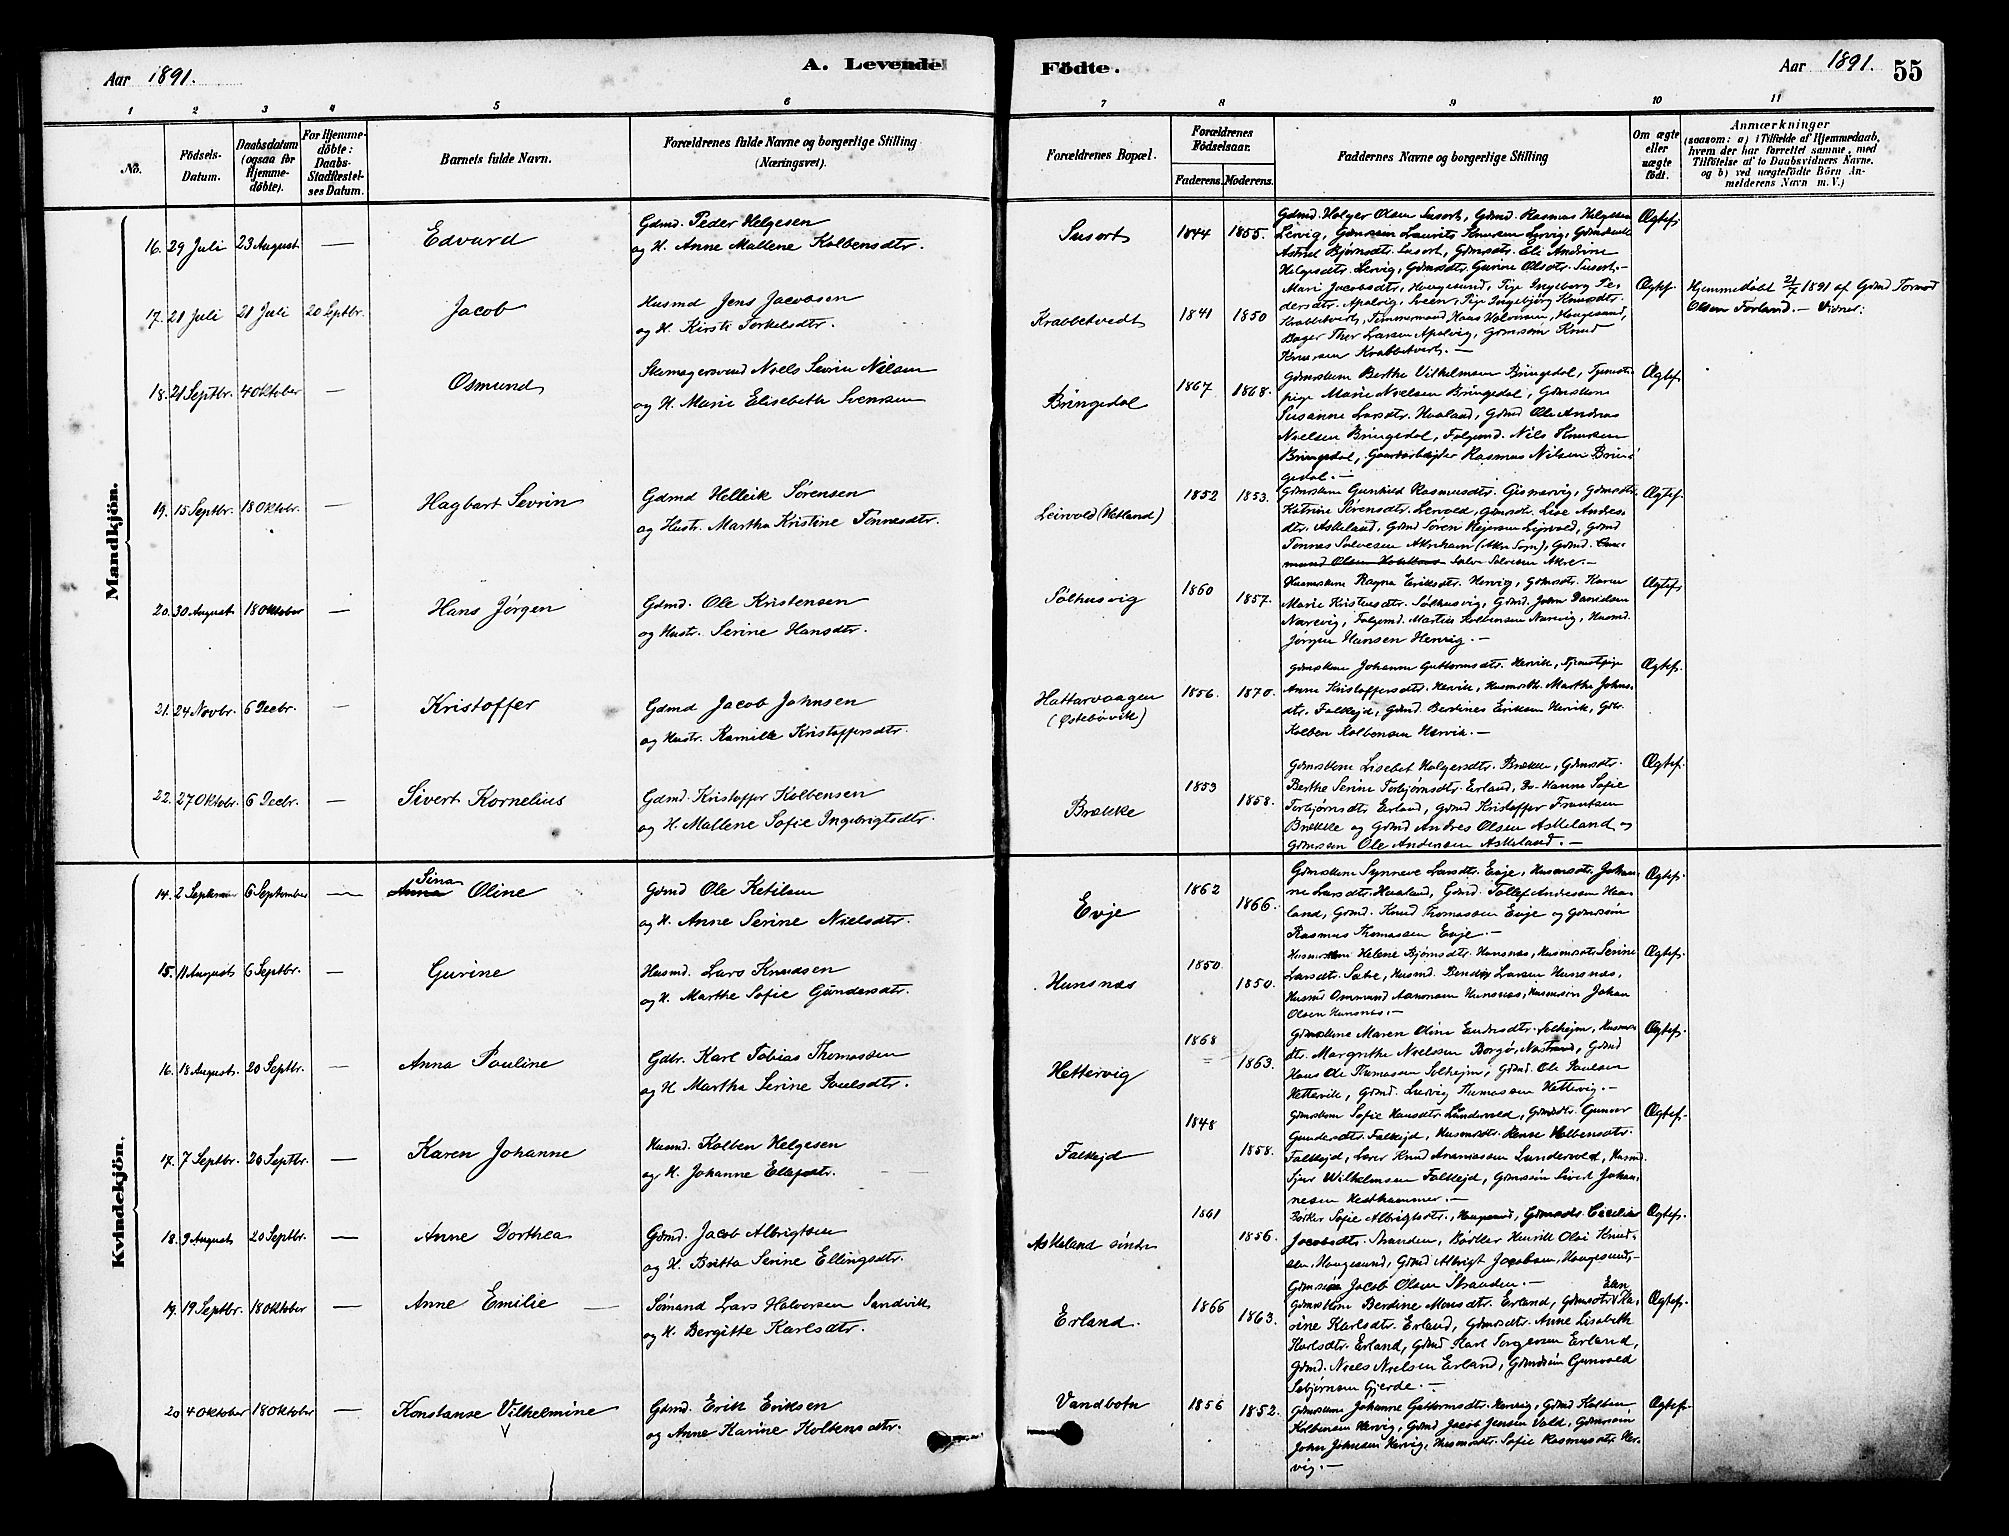 Aar 1891.
A. Levende
Födte.
Aar 1891.
55
1 2 3 4 5 6 7 8 9 10 11
No.
Födsels-
Datum.
Daabsdatum
(ogsaa for
Hjemme-
döbte).
For Hjemme-
döbte:
Daabs-
Stadfæstel-
ses Datum.
Barnets fulde Navn.
Forældrenes fulde Navne og borgerlige Stilling
(Næringsvei).
Forældrenes Bopæl.
Forældrenes
Födselsaar.
Faderens. Moderens.
Faddernes Navne og borgerlige Stilling
Om ægte
eller
uægte
født.
Anmærkninger
(saasom: a) i Tilfælde af Hjemmedaab,
hvem der har forrettet samme, med
Tilföielse af to Daabsvidners Navne,
og b) ved uægtefödte Börn An-
melderens Navn m. V.)
Mandkjön.
16. 29 Juli 23 August — Edvard
Gdmd. Peder Helgesen
og H. Anne Mallene Kolbensdtr.
Susort 1844 1855.
Gdmd. Holger Olsen Susort, Gdmd. Rasmus Helgesen
Lervig, Laurits Knutsen Lervig,
Astrid Bjørnsdtr. Susort, Gdmdsdtr. Eli Andrine
Helgesdtr. Lervig, Gdmdsdtr. Gurine Olsdtr. Susort.—
Ægtef.
17. 21 Juli 21 Juli 20 Septbr. Jacob
Husmd Jens Jacobsen
og H. Kirsti Torkelsdtr.
Krabbetvedt 1841 1850
Mari Jacobsdtr. Haugesund, Pige Ingeborg Pe-
dersdtr. Apalvig, Pige Ingebjørg Knutsdtr.
Krabbetvedt, Tømmermand Hans Halvorsen, Haugesund,
Bager Thor Larsen Apalvig, Gdmdsøn Knud
Knutsen Krabbetvedt. —
Ægtef.
Hjemmedøbt 21/7 1891 af Gdmd Tormod
Olsen Førland. — Vidner:
18. 21 Septbr. 4 Oktober — Osmund
Skomagersvend Niels Sevrin Nilsen
og H. Marie Elisabeth Svensen
Bringedal 1867 1868.
Gdmdskone Berthe Vilhelmsen Bringedal, Tjeneste-
pige Marie Nielsen Bringedal, Gdmdskone
Susanne Larsdtr. Haaland, Gdmd Ole Andreas
Nielsen Bringedal, Folgemd. Nils Knutsen
Bringedal, Gaardarbejder Rasmus Nilsen Brin-
gedal. —
Ægtef.
19. 15 Septbr. 18 Oktobr. — Hagbart Sevrin
Gdmd Helleik Sørensen
og Hustr. Martha Kristine Tønnesdtr.
Leirvold (Hetland) 1852 1853.
Gdmdskone Gunhild Rasmusdtr. Gismervig, Gdmdsdtr.
Katrine Sørensdtr. Lervold, Gdmdsdtr. Lise Andres-
dtr. Askeland, Gdmd Søren Rejersen Lejrvold, Gdmd
Tønnes Salvesen Akrehavn (Akre Sogn), Gdmd.
Salve Salvesen Akre. —
Ægtef.
20. 30 August 18 Oktober — Hans Jørgen
Gdmd. Ole Kristensen
og Hustr. Serine Hansdtr.
Sølhusvig 1860 1857.
Husmdskone Ragna Eriksdtr. Hervig, Gdmdsdtr. Karen
Marie Kristensdtr. Sølhusvig, Gdmd. John Danielsen
Narevig, Folgemd. Martin Kolbensen Narevig, Husmd.
Jørgen Hansen Hervig. —
Ægtef.
21. 24 Novbr. 6 Decbr. — Kristoffer
Gdmd Jacob Johnsen
og Hustr. Kamille Kristoffersdtr.
Hattarvaagen
(Østebøvik) 1856. 1870.
Gdmdskone Johanne Guttormsdtr. Hervik, Tjenestepige
Anne Kristoffersdtr. Hervik, Husmdsdtr. Martha Johns-
dtr. Falkejd, Gdmd. Berdines Eriksen Hervik, Gdbr.
Kolben Kolbensen Hervik. —
Ægtef.
22. 27 Oktobr. 6 Decbr. — Sivert Kornelius
Gdmd. Kristoffer Kolbensen
og H. Mallene Sofie Ingebrigtsdtr.
Brække 1853 1858.
Gdmdskone Lisebet Holgersdtr. Brække, Gdmdsdtr.
Berthe Serine Torbjørnsdtr. Erland, Do. Hanna Sofie
Torbjørnsdtr Erland, Gdmd Kristoffer Frantsen
Brække og Gdmd Andres Olsen Askeland og
Gdmdsøn Ole Andersen Askeland. —
Ægtef.
Kvindekjön.
14. 2 September 6 September — Sina
Anna Oline
Gdmd Ole Ketilsen
og H. Anne Serine Nielsdtr.
Evje 1862 1866.
Gdmdskone Synneve Larsdtr. Evje, Husmdsdtr. Johan-
ne Larsdtr. Haaland, Gdmd. Tollef Andersen Haa-
land, Gdmd. Knud Thomassen Evje og Gdmdsøn
Rasmus Thomassen Evje. —
Ægtef.
15. 11 August 6 Septbr. — Gurine
Husmd. Lars Knudsen
og H. Marthe Sofie Gundersdtr.
Hunsnæs 1850. 1850.
Husmdskone Helene Bjørnsdtr. Hunsnæs, Husmdsdtr Serine
Larsdtr. Sæbø, Husmd. Bendix Larsen Hunsnæs,
Husmd Ommund Aanonsen Hunsnæs, Husmdsøn Johan
Olsen Hunsnæs. —
Ægtef.
16. 18 August 20 Septbr. — Anna Pauline
Gdbr. Karl Tobias Thomassen
og H. Martha Serine Paulsdtr.
Hettervig 1868 1863.
Gdmdskone Maren Oline Endresdtr. Solhejm, Husmds-
dtr. Margrethe Nielsen Borgø, Nastrand, Gdmd
Hans Ole Thomassen Solhejm, Gdmd. Ole Paulsen
Hettervik, Gdmd. Ludvig Thomassen Hettervig. —
Ægtef.
17. 7 Septbr. 20 Septbr. — Karen Johanne
Husmd. Kolben Helgesen
og H. Johanne Ellefsdtr.
Falkejd 1848 1858.
Gdmdskone Sofie Hansdtr. Lundevold, Gdmdsdtr. Gunvor
Gundersdtr. Falkejd, Husmdsdtr. Kolbensdtr.
Falkejd, Lærer Knud Ananiassen Lundevold, Husmd.
Sjur Wilhelmsen Falkejd, Gdmdsøn Sivert Johan-
nesen Hesthammer. —
Ægtef.
18. 9 August 20 Septbr. — Anne Dorthea
Gdmd. Jacob Albrigtsen
og H. Britta Serine Ellingsdtr.
Askeland indre 1861 1856.
Sofie Albrigtsdtr., Haugesund, Gdmdsdtr. Cecilie
Jacobsdtr. Stranden, Bødker Henrik Olai Knud-
sen, Haugesund, Gdmd Albrigt Jacobsen, Haugesund,—
Gdmdsøn Jacob Olsen Stranden. —
Ægtef.
19. 19 Septbr. 18 Oktober — Anne Emilie —
Sømand Lars Halversen Sandvik
og H. Bergitte Karlsdtr.
Erland. 1866 1863.
Gdmdskone Berdine Monsdtr. Erland, Gdmdsdtr. Ka-
rine Karlsdtr. Erland, Gdmdsdtr. Anne Lisabeth
Karlsdtr. Erland, Gdmd Karl Torgersen Erland,
Gdmd. Niels Nielsen Erland, Gdmdsøn Gunvald
Sebjørnsen Gjerde. —
Ægtef.
20 4 Oktober 18 Oktober — Konstanse Vilhelmine
Gdmd. Erik Eriksen
og Anne Karine Kolbensdtr.
Vandbotn 1856 1852.
Gdmdskone Johanne Guttormsdtr. Hervig, Gdmd Kolben
Kolbensen Hervig, Gdmd Jacob Jensen Vold, Gdmdsøn
John Johnsen Hervig, Husmdsdtr. Sofie Rasmusdtr. Her-
vig. —
Ægtef.